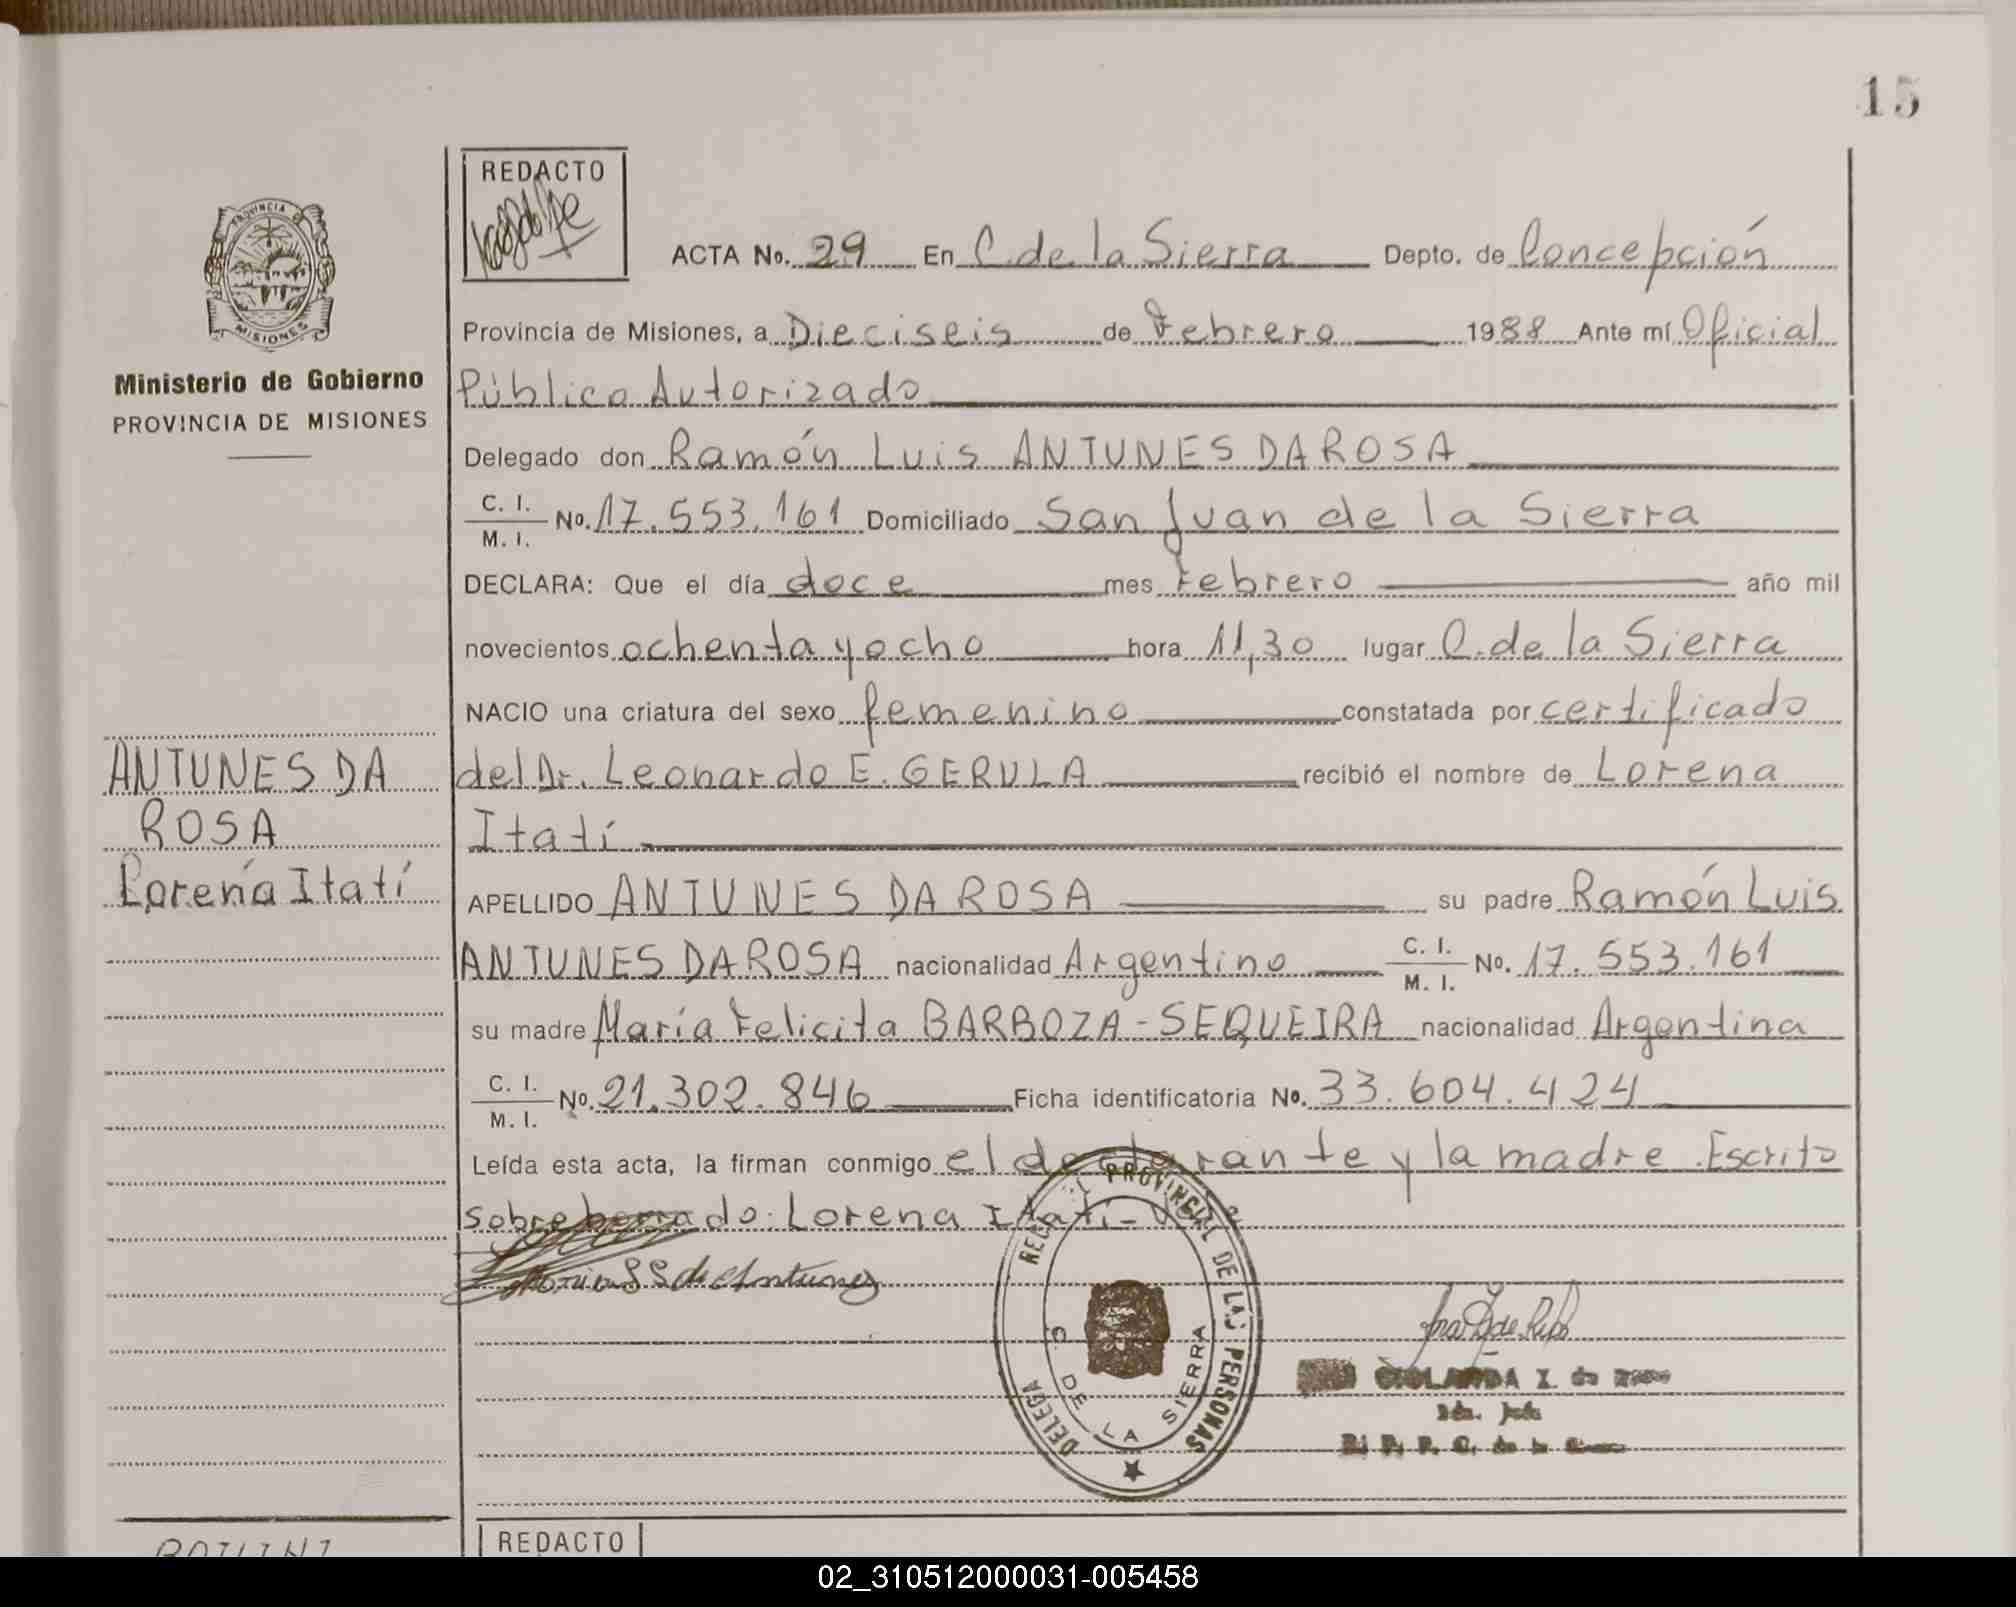 15
REDACTO
PROVINCIA DE
MISIONES
Ministerio de Gobierno
PROVINCIA DE MISIONES
ACTA No. 29 En C. de la Sierra Depto. de Concepción
Provincia de Misiones, a Dieciseis de Febrero 1988 Ante mí Oficial
Público Autorizado
Delegado don Ramón Luis ANTUNES DA ROSA
C. I.
M. I. No. 17.553.161 Domiciliado San Juan de la Sierra
DECLARA: Que el día doce mes Febrero año mil
novecientos ochenta y ocho hora 11,30 lugar C. de la Sierra
NACIO una criatura del sexo femenino constatada por certificado
del Dr. Leonardo E. GERULA recibió el nombre de Lorena
Itatí
ANTUNES DA
ROSA
Lorena Itatí
APELLIDO ANTUNES DA ROSA su padre Ramón Luis
ANTUNES DA ROSA nacionalidad Argentino C. I.
M. I. No. 17.553.161
su madre María Felicita BARBOZA-SEQUEIRA nacionalidad Argentina
C. I.
M. I. No. 21.302.846 Ficha identificatoria No. 33.604.424
Leída esta acta, la firman conmigo el declarante y la madre. Escrito
sobreborrado: Lorena Itatí-
PROVINCIAL DE LAS PERSONAS
DELEGA
C. DE LA SIERRA
REDACTO
02_310512000031-005458